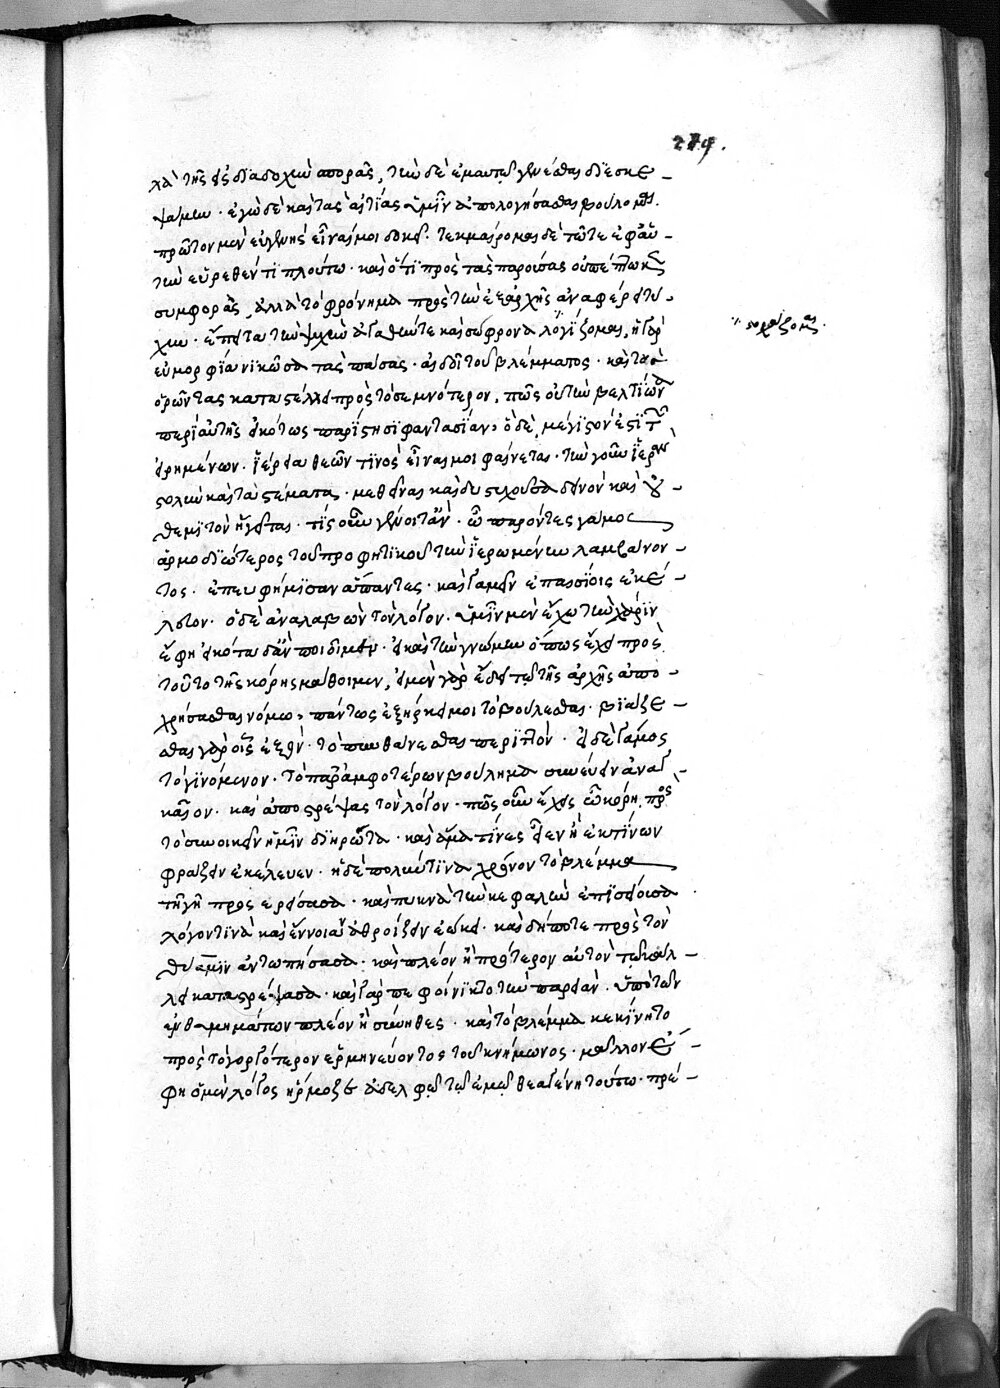 279.
λὰ τῆς εἰς διαδοχὴν σπορᾶς, τὴν δὲ ἐμαυτῷ γενέσθαι διεσκε-
ψάμην· ἐγὼ δὲ καὶ τὰς αἰτίας ὑμῖν ἀπολογήσασθαι βούλομαι.
πρῶτον μὲν εὐγενὴς εἶναί μοι δοκεῖ· τεκμαίρομαι δὲ τῶτε ἐφ' αὑ-
τὴν εὑρεθέντι πλούτω· καὶ ὅτι πρὸς τὰς παρούσας οὐ πέπτωκε
συμφορὰς, ἀλλὰ τὸ φρόνημα πρὸς τὴν ἐξ ἀρχῆς ἀναφέρει τύ-
χην· ἔπειτα τὴν ψυχὴν ἀγαθήν τε καὶ σώφρονα λογίζομαι, ἢ γὰρ
στοχάζομαι.
εὐμορφία νικῶσα τὰς πάσας· αἰδοῖ τοῦ βλέμματος· καὶ τοὺς
ὁρῶντας καταστέλλει πρὸς τὸ σεμνότερον, πῶς οὐ τὴν βελτίων
περὶ αὐτῆς εἰκότως παρίστησι φαντασίαν; ὃ δὲ μέγιστόν ἐστι τῶν
εἰρημένων· ἱέρεια θεῶν τινὸς εἶναί μοι φαίνεται· τὴν γοῦν ἱερὰν
στολὴν καὶ τὰ στέματα· μεθεῖναι καὶ δυστυχοῦσα δεινὸν καὶ οὐ
θεμιτὸν ἡγεῖται· τίς οὖν γένοιτ' ἂν· ὦ παρόντες γάμος
ἁρμοδιώτερος τοῦ προφητικοῦ τὴν ἱερωμένην λαμβάνον-
τος· ἐπευφήμισαν ἅπαντες· καὶ γαμεῖν ἐπ' αἰσίοις ἐκέ-
λευον· ὁ δὲ ἀναλαβὼν τὸν λόγον· ὑμῖν μὲν ἔχω τὴν χάριν
ἔφη εἰκότα δ' ἂν ποιοίμεν· εἰ καὶ τὴν γνώμην ὅπως ἔχει πρὸς
τοῦτο τῆς κόρης μάθοιμεν, εἰ μὲν γὰρ ἔδει τῷ τῆς ἀρχῆς ἀπο-
χρήσασθαι νόμω, πάντως ἐξήρκει μοι τὸ βούλεσθαι· βιάζε-
σθαι γὰρ οἷς ἐξὸν· τὸ πυνθάνεσθαι περιττὸν· εἰ δὲ γάμος
τὸ γινόμενον· τὸ παρ' ἀμφοτέρων βούλημα συνεύειν ἀναγ-
καῖον· καὶ ἀποστρέψας τὸν λόγον· πῶς οὖν ἔχεις ὦ κόρη, πρὸς
τὸ συνοικεῖν ἡμῖν διηρώτα· καὶ ἅμα τίνες εἶεν ἢ ἐκ τίνων
φράζειν ἐκέλευεν· ἡ δὲ πολύν τινα χρόνον τὸ βλέμμα
τῆ γῆ προσερείσασα· καὶ πυκνὰ τὴν κεφαλὴν ἐπισείουσα
λόγον τινὰ καὶ ἔννοιαν ἀθροίζειν ἐώκει· καὶ δή ποτε πρὸς τὸν
θύαμιν ἀντωπήσασα· καὶ πλέον ἢ πρότερον αὐτὸν τῷ κάλ-
λει καταστρέψασα· καὶ γὰρ πεφοίνικτο τὴν παρειὰν· ὑπὸ τῶν
ἐνθυμημάτων πλέον ἢ σύνηθες· καὶ τὸ βλέμμα κεκίνητο
πρὸς τὸ γοργότερον ἑρμηνεύοντος τοῦ κνήμωνος· μᾶλλον ἔ-
φη ὁ μὲν λόγος ἥρμοζεν ἀδελφῷ τῷ ἐμῷ θεαγένη τούτω· πρέ-